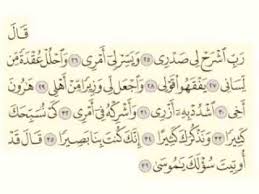 قَالَ
رَبِّ ٱشْرَحْ لِى صَدْرِى ٢٥ وَيَسِّرْ لِىٓ أَمْرِى ٢٦ وَٱحْلُلْ عُقْدَةً مِّن
لِّسَانِى ٢٧ يَفْقَهُوا۟ قَوْلِى ٢٨ وَٱجْعَل لِّى وَزِيرًا مِّنْ أَهْلِى ٢٩ هَـٰرُونَ
أَخِى ٣٠ ٱشْدُدْ بِهِۦٓ أَزْرِى ٣١ وَأَشْرِكْهُ فِىٓ أَمْرِى ٣٢ كَىْ نُسَبِّحَكَ
كَثِيرًا ٣٣ وَنَذْكُرَكَ كَثِيرًا ٣٤ إِنَّكَ كُنتَ بِنَا بَصِيرًا ٣٥ قَالَ قَدْ
أُوتِيتَ سُؤْلَكَ يَـٰمُوسَىٰ ٣٦